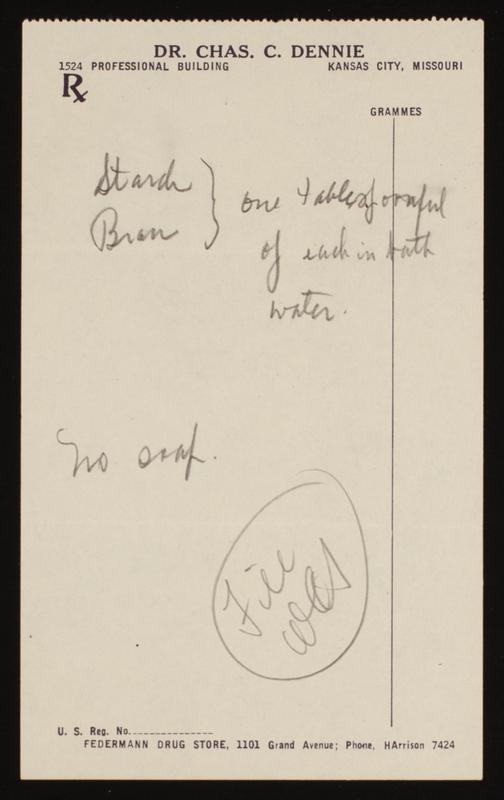 DR. CHAS. C. DENNIE
1524 PROFESSIONAL BUILDING KANSAS CITY, MISSOURI
Rx
GRAMMES
Starch
Bran
one tablespoonful
of each in bath
water.
No soap.
File
U. S. Reg. No.
FEDERMANN DRUG STORE, 1101 Grand Avenue; Phone, HArrison 7424